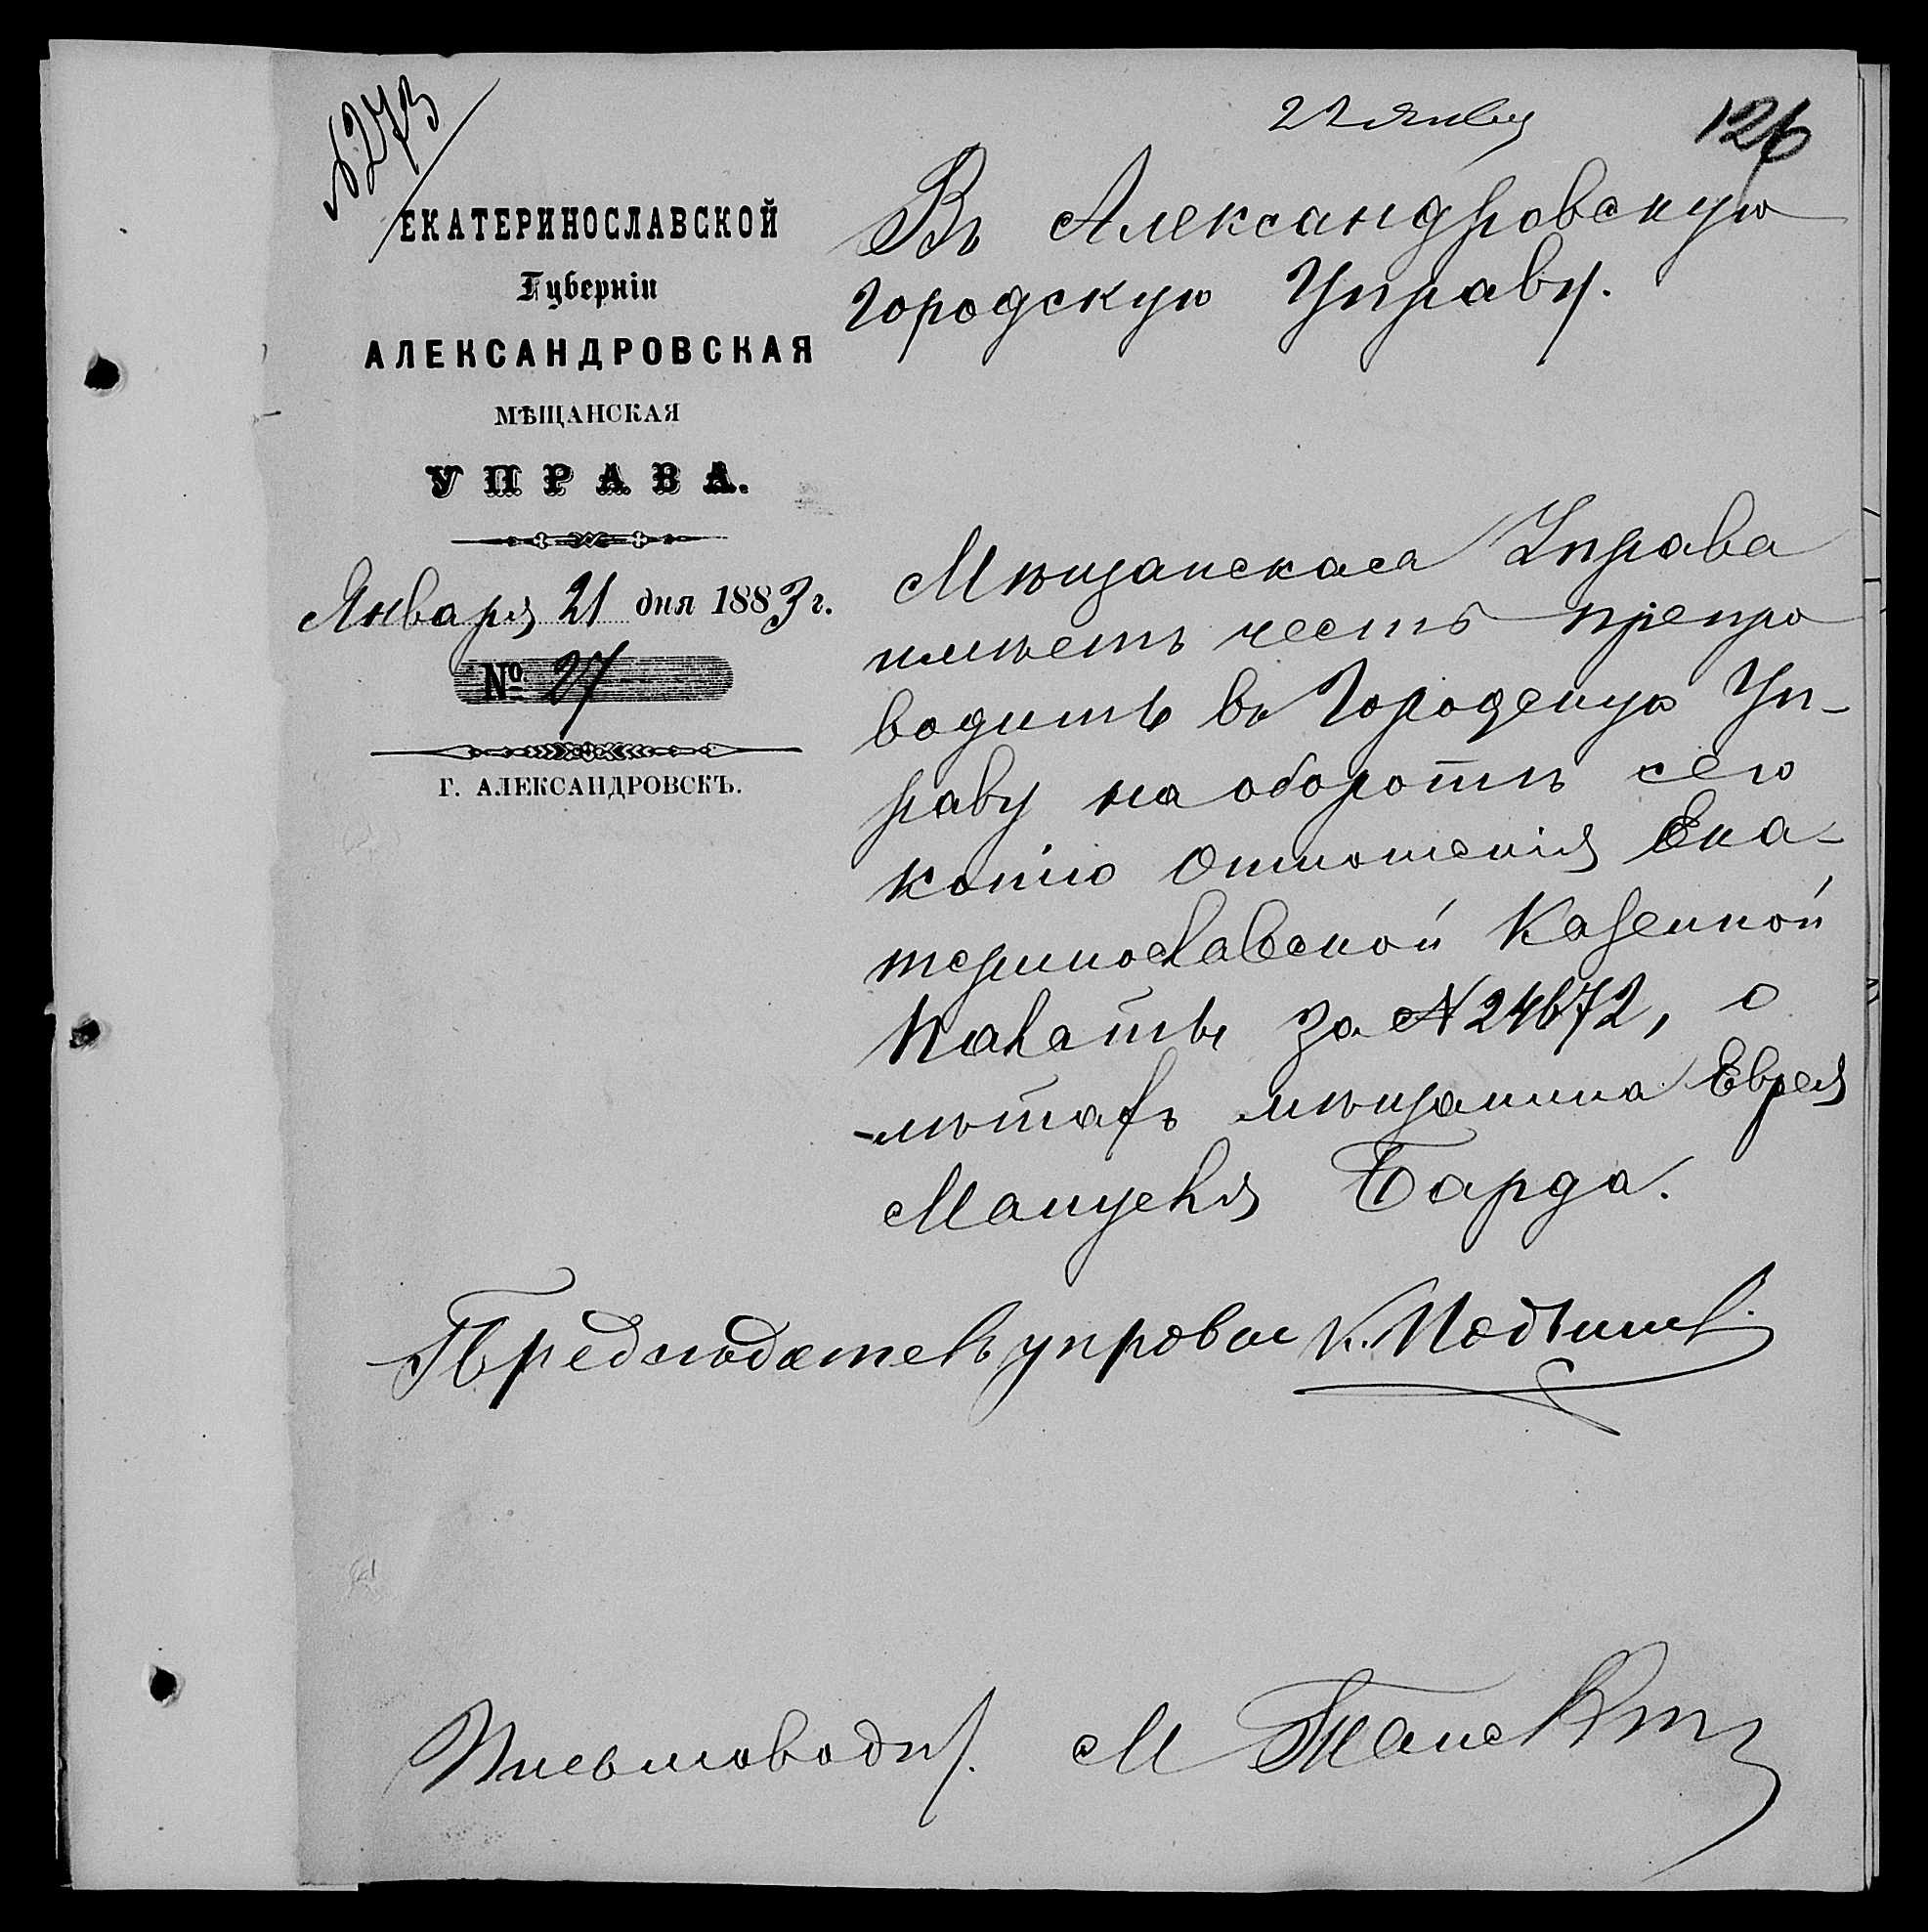 № 273
22 Янв
126
ЕКАТЕРИНОСЛАВСКОЙ
Губерніи
АЛЕКСАНДРОВСКАЯ
МѢЩАНСКАЯ
УПРАВА.
Января 21 дня 1883 г.
№ 27
Г. АЛЕКСАНДРОВСКЪ.
Въ Александровскую
Городскую Управу.
Мѣщанская Управа
имѣетъ честь препро
водить въ Городскую Уп-
раву на оборотѣ сего
копію отношенія Ека-
теринославской Казенной
Палаты за № 24672, о
лѣтахъ мѣщанина Еврея
Мануеля Барда.
Предсѣдатель управы К.
Письмовод. М